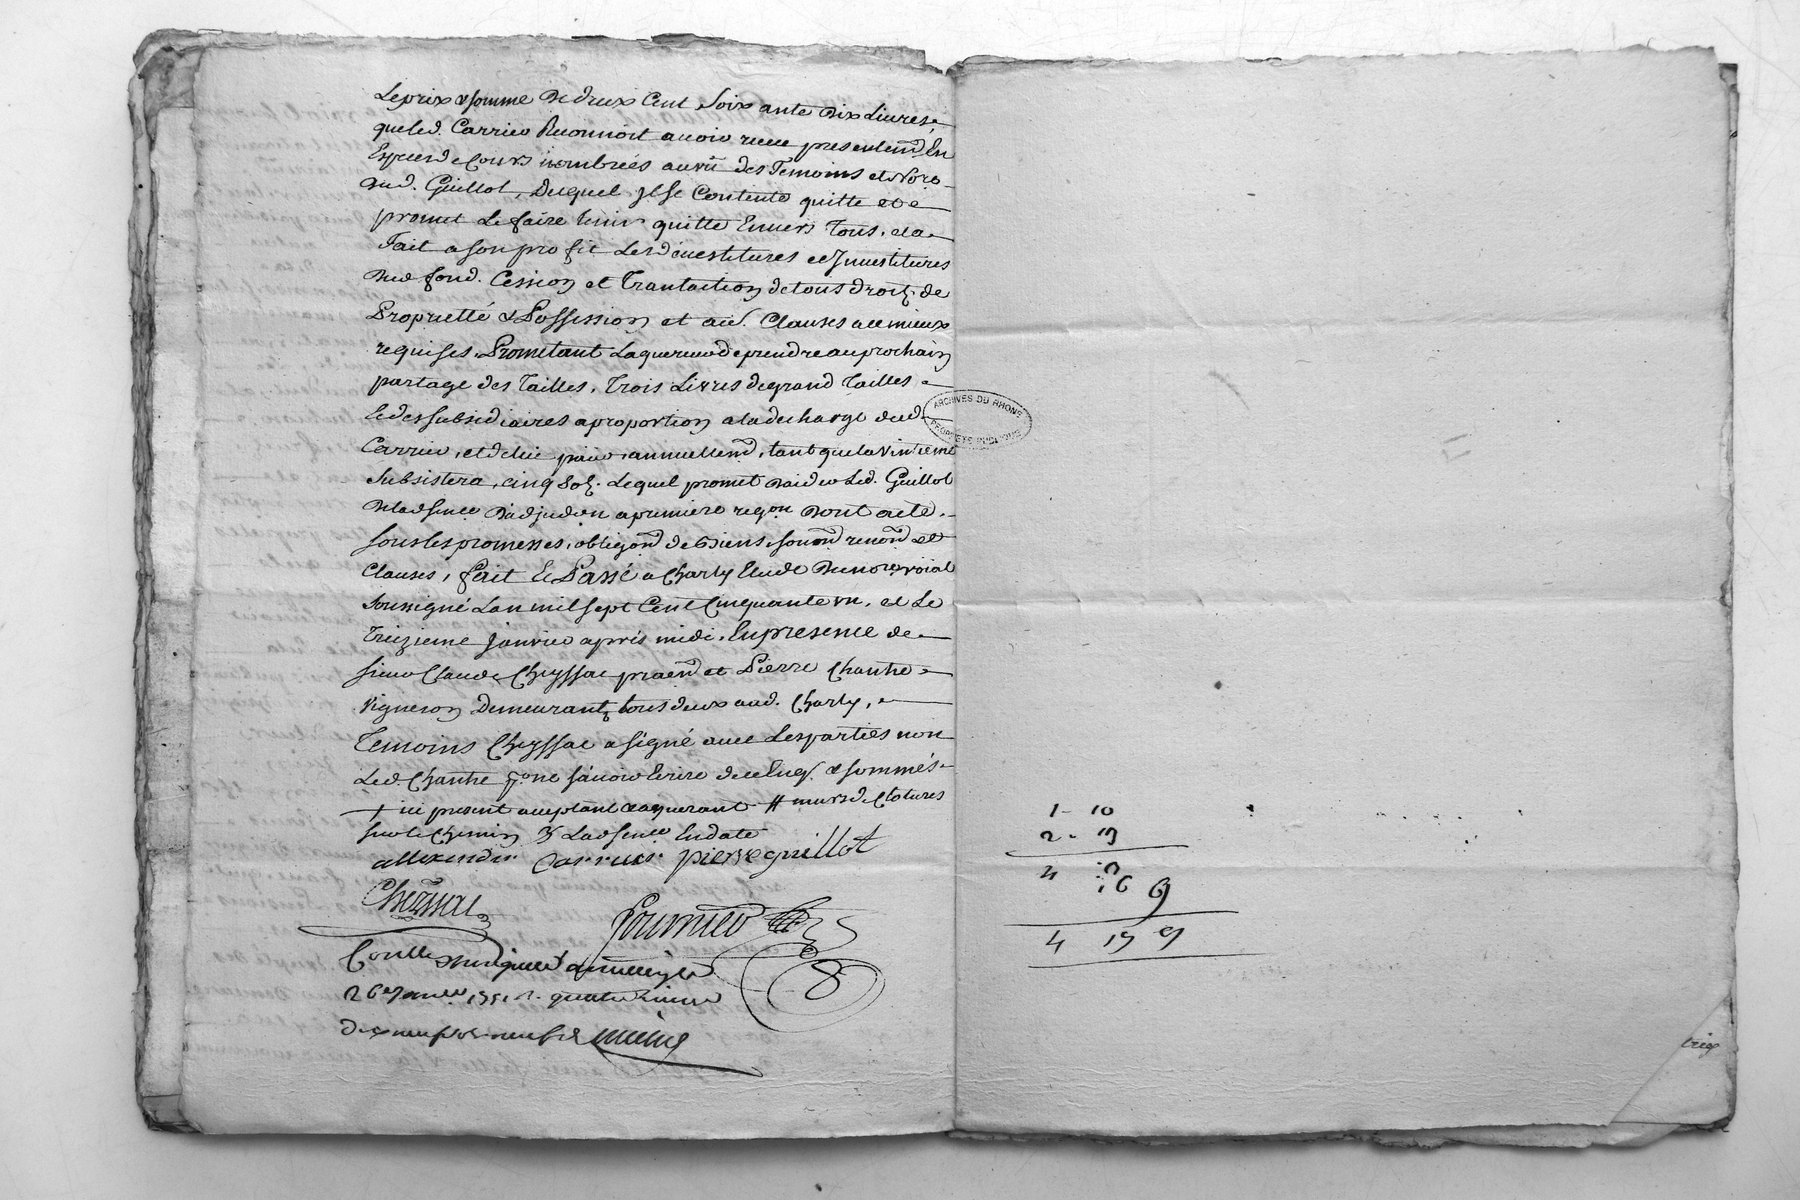 Le prix & somme De deux Cent Soixante Dix Livres,
que led. Carrier Reconnoit avoir receu presentemt. En
Especes de Cours nombrées au vû des Temoins et No.re
aud. Guillot, Duquel Il se Contente quitte et
promet Le faire tenir quitte Envers Tous, et a
Fait a son profit Les dévestitures et Investitures
Dud. fond. Cession et Translaction de tous droits de
Proprietté & Possession et au.s Clauses a ce mieux
requises, Prometant L'aquereur de prendre au prochain
partage des Tailles, Trois Livres de grand Tailles
Et des subsidiaires a proportion a la decharge dud.
Carrier, et de luy paier annuellemt., tant que la vintieme
Subsistera, cinq Sols. Lequel promet D'aider Led. Guillot
De Lad. sence D'adjud.on a premiere reqon. Dont acte.
sous les promesses, obligaons. de Biens, soumons. renons. et
Clauses, fait Et Passé a Charly Etude Du no.re roial
Soussigné L'an mil sept Cent Cinquante un, et Le
Treizieme Janvier après midi, En presence de
sieur Claude Cheyssac praen. et Pierre Chanthe
Vigneron Demeurants tous deux aud. Charly,
Temoins Cheyssac a signé avec Les parties non
Led. Chanthe p.r ne sçavoir Ecrire de ce Enq. & sommés
+ ici present aceptant & aquerant # murs de Clotures
sur le Chemin Lad. sence En date
allexendre Carrier pierre guillot
Cheyssac
Fournier
8
Conllé
26e Janv.er 1751 R. quatre livres
dix neuf sols neuf d.
ARCHIVES DU RHONE
1 - 10
2 - 19
4 19 9
trois